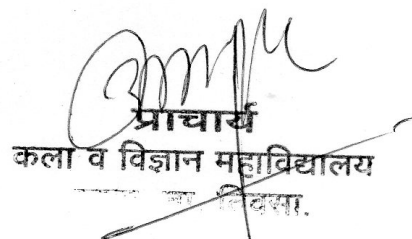 प्राचार्य
कला व विज्ञान महाविद्यालय
ता. तिवसा.